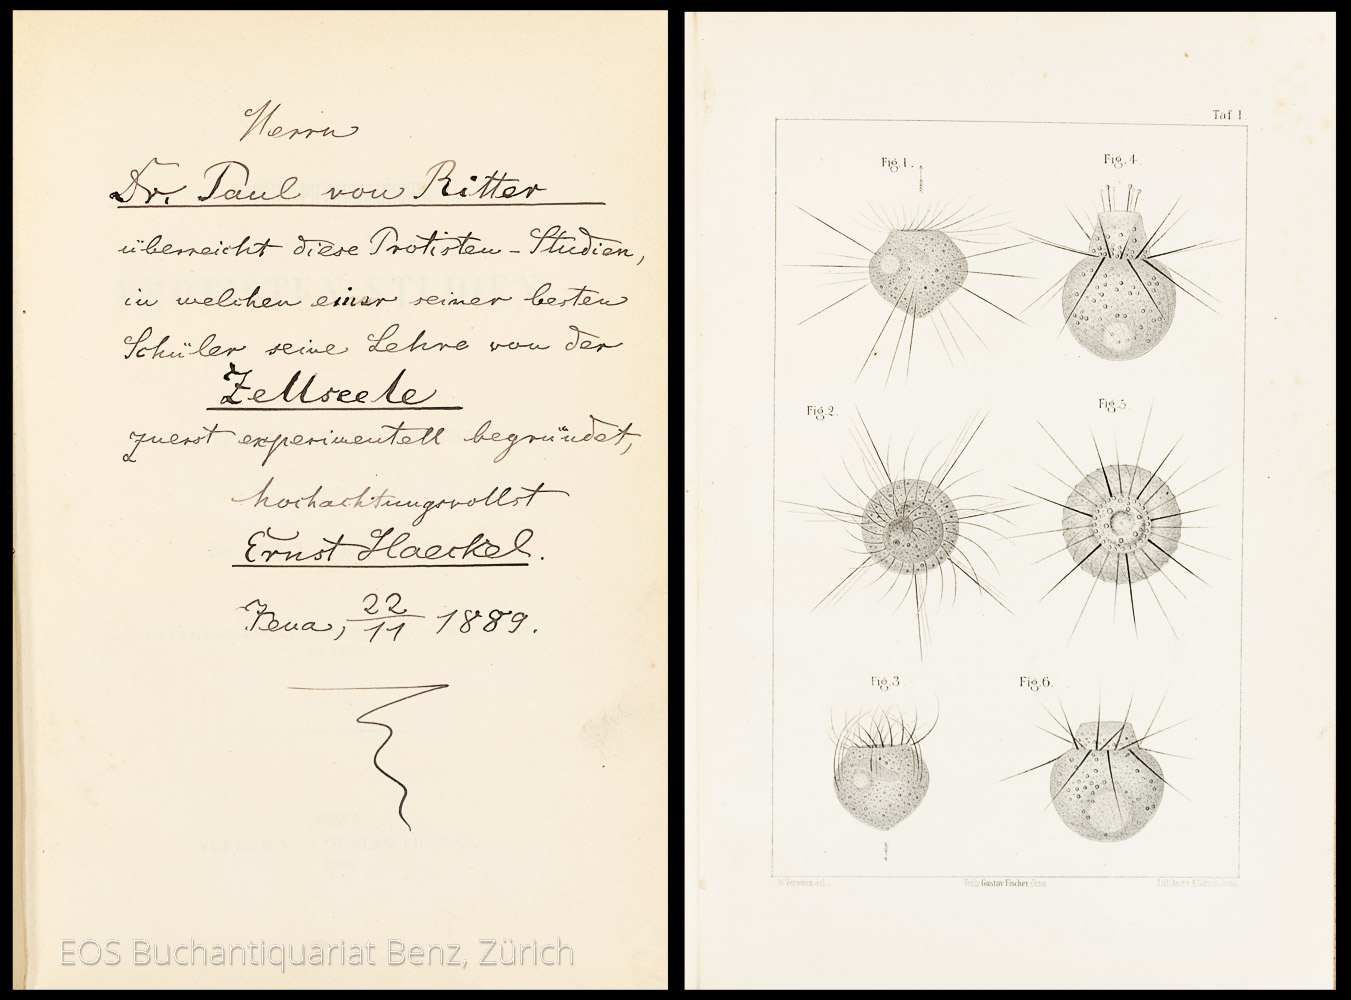 Herrn
Dr. Paul von Ritter
überreicht diese Protisten-Studien,
in welchen einer seiner besten
Schüler seine Lehre von der
Zellseele
zuerst experimentell begründet,
hochachtungsvollst
Ernst Haeckel.
Jena, 22/11 1889.
EOS Buchantiquariat Benz, Zürich
Taf I.
Fig. 1.
Fig. 4.
Fig. 2.
Fig. 5.
Fig. 3.
Fig. 6.
Verworn del.
Verlv Gustav Fischer Jena